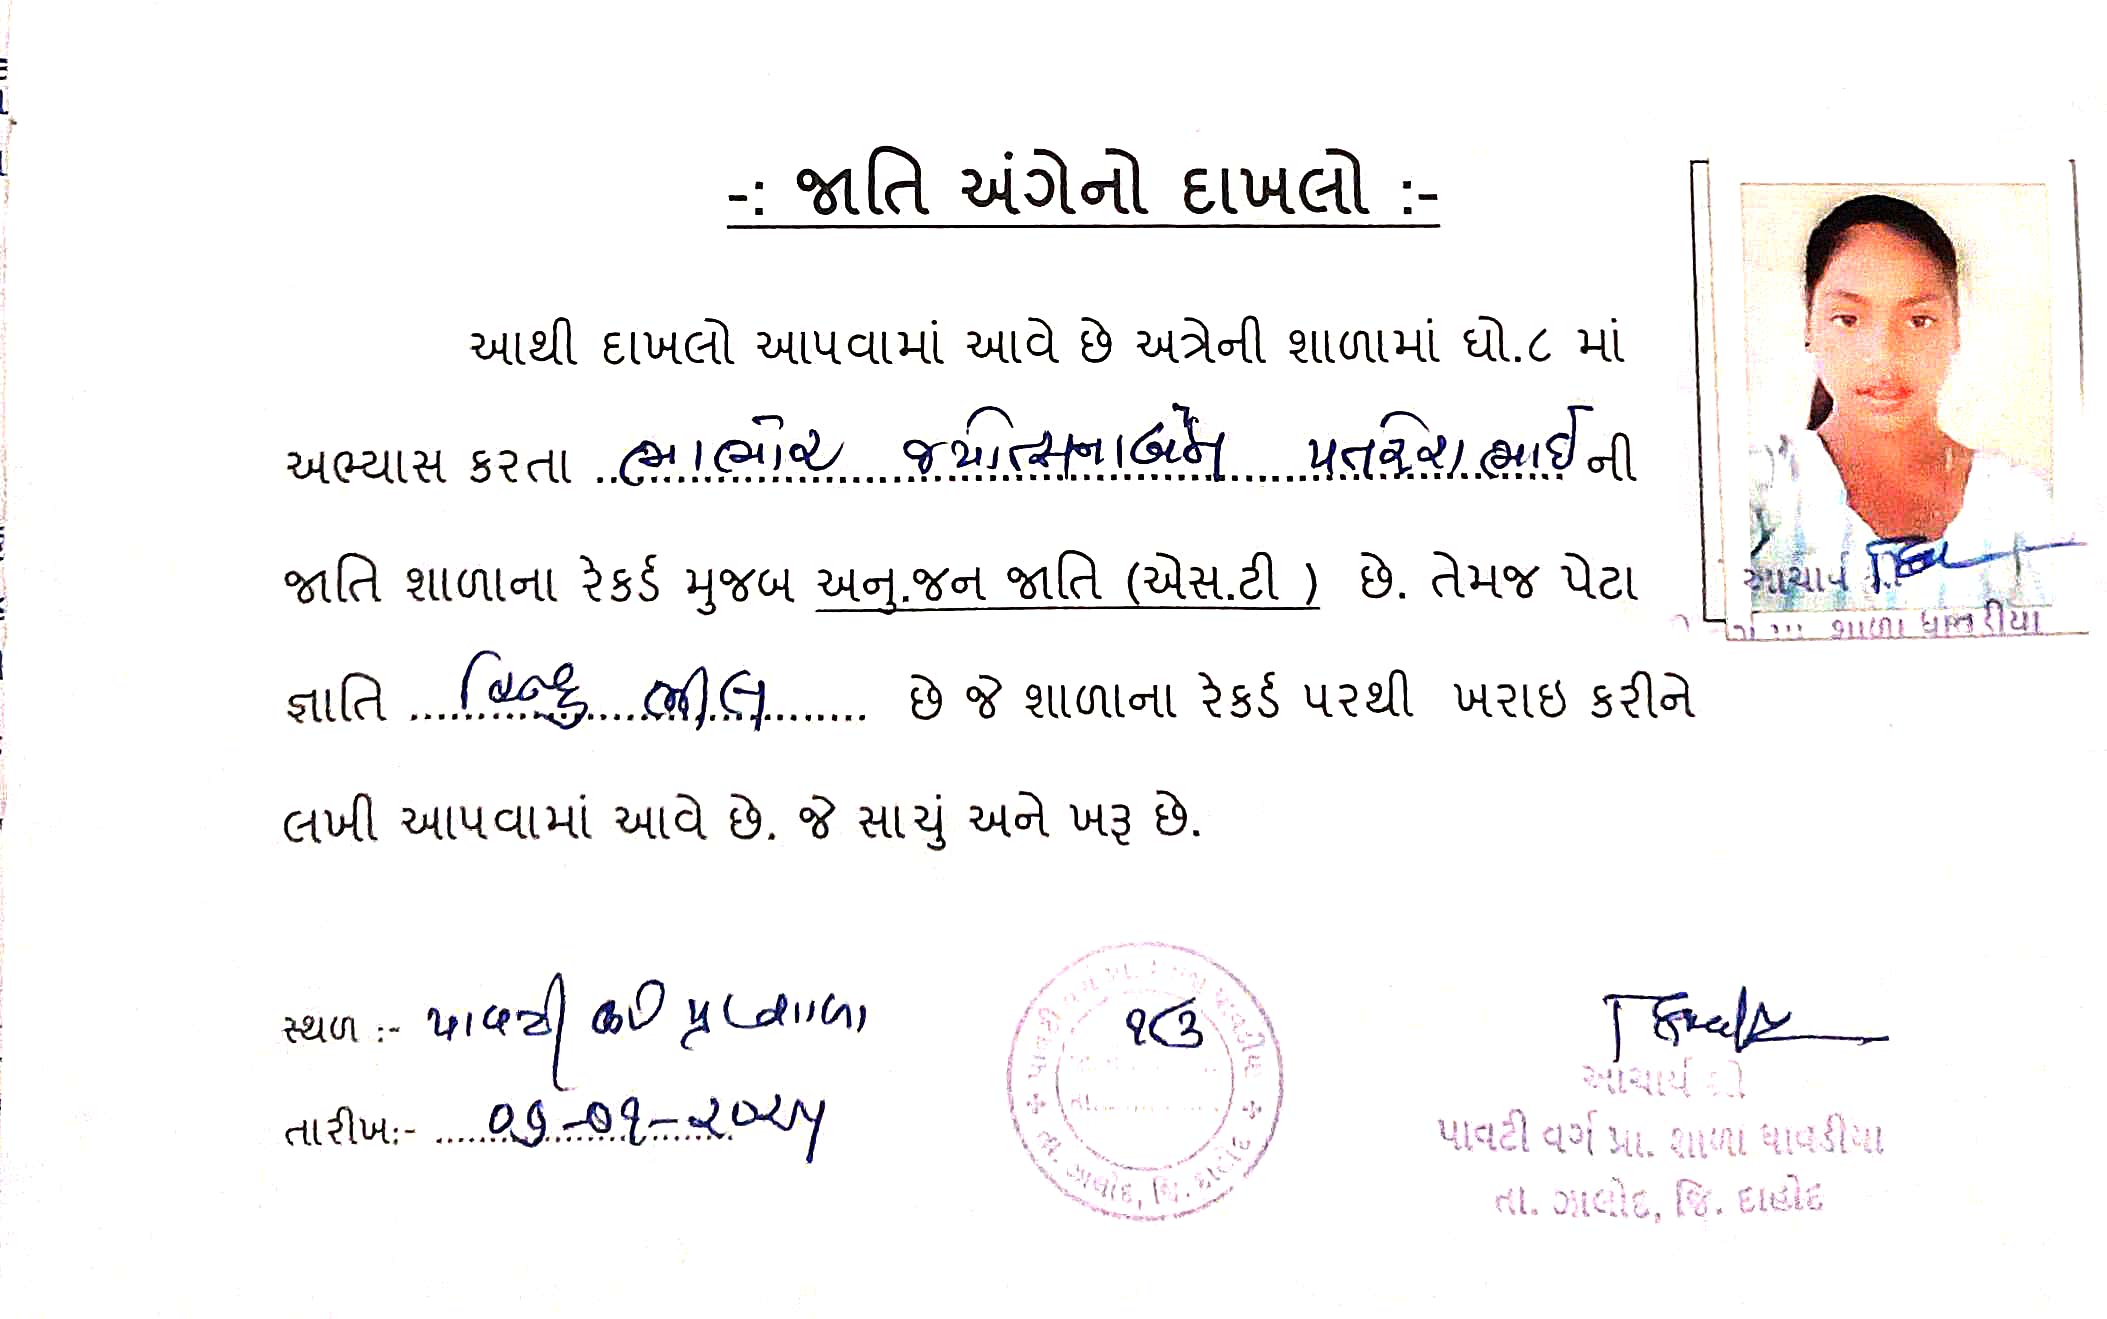 -: જાતિ અંગેનો દાખલો :-
આથી દાખલો આપવામાં આવે છે અત્રેની શાળામાં ધો.૮ માં
અભ્યાસ કરતા ભાભોર જયોત્સનાબેન પતરેશભાઈ ની
જાતિ શાળાના રેકર્ડ મુજબ અનુ.જન જાતિ (એસ.ટી ) છે. તેમજ પેટા
જ્ઞાતિ હિન્દુ ભીલ છે જે શાળાના રેકર્ડ પરથી ખરાઇ કરીને
લખી આપવામાં આવે છે. જે સાચું અને ખરૂ છે.
આચાર્ય
શાળા ધાવડીયા
સ્થળ :- પાવટી વર્ગ પ્રા શાળા
તારીખ:- ૦૭-૦૧-૨૦૨૫
તા. ઝાલોદ, જિ. દાહોદ
આચાર્ય શ્રી
પાવટી વર્ગ પ્રા. શાળા ધાવડીયા
તા. ઝાલોદ, જિ. દાહોદ